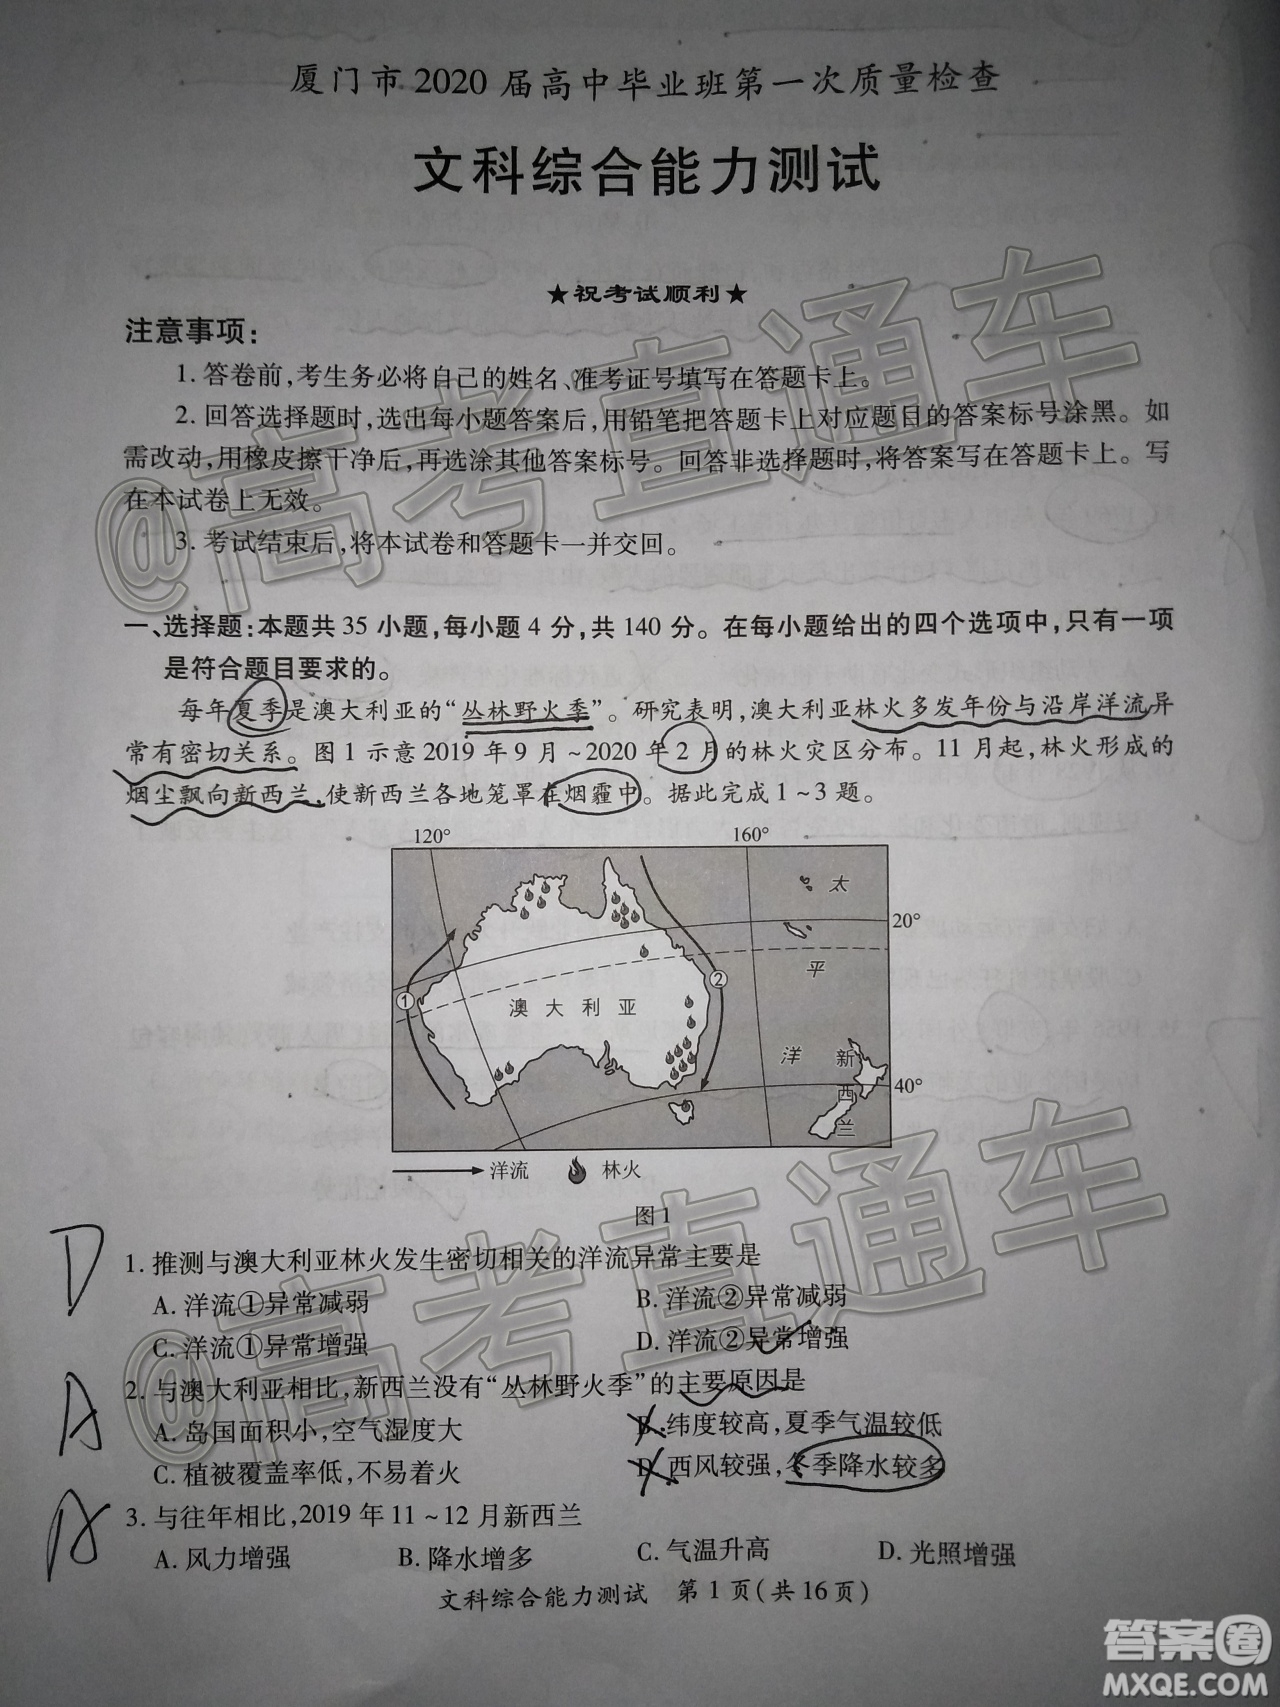 厦门市 2020 届高中毕业班第一次质量检查
文科综合能力测试
★祝考试顺利★
注意事项：
1. 答卷前，考生务必将自己的姓名、准考证号填写在答题卡上。
2. 回答选择题时，选出每小题答案后，用铅笔把答题卡上对应题目的答案标号涂黑。如
需改动，用橡皮擦干净后，再选涂其他答案标号。回答非选择题时，将答案写在答题卡上。写
在本试卷上无效。
3. 考试结束后，将本试卷和答题卡一并交回。
一、选择题：本题共 35 小题，每小题 4 分，共 140 分。在每小题给出的四个选项中，只有一项
是符合题目要求的。
每年夏季是澳大利亚的“丛林野火季”。研究表明，澳大利亚林火多发年份与沿岸洋流异
常有密切关系。图 1 示意 2019 年 9 月～2020 年 2 月的林火灾区分布。11 月起，林火形成的
烟尘飘向新西兰，使新西兰各地笼罩在烟霾中。据此完成 1～3 题。
120° 160°
太
20°
平
① ②
澳大利亚
洋 新
西
兰
40°
洋流 林火
图 1
D
1. 推测与澳大利亚林火发生密切相关的洋流异常主要是
A. 洋流①异常减弱 B. 洋流②异常减弱
C. 洋流①异常增强 D. 洋流②异常增强
A
2. 与澳大利亚相比，新西兰没有“丛林野火季”的主要原因是
A. 岛国面积小，空气湿度大 B. 纬度较高，夏季气温较低
C. 植被覆盖率低，不易着火 D. 西风较强，冬季降水较多
3. 与往年相比，2019 年 11～12 月新西兰
A. 风力增强 B. 降水增多 C. 气温升高 D. 光照增强
文科综合能力测试 第 1 页（共 16 页）
@高考直通车
@高考直通车
答案圈
MXQE.COM